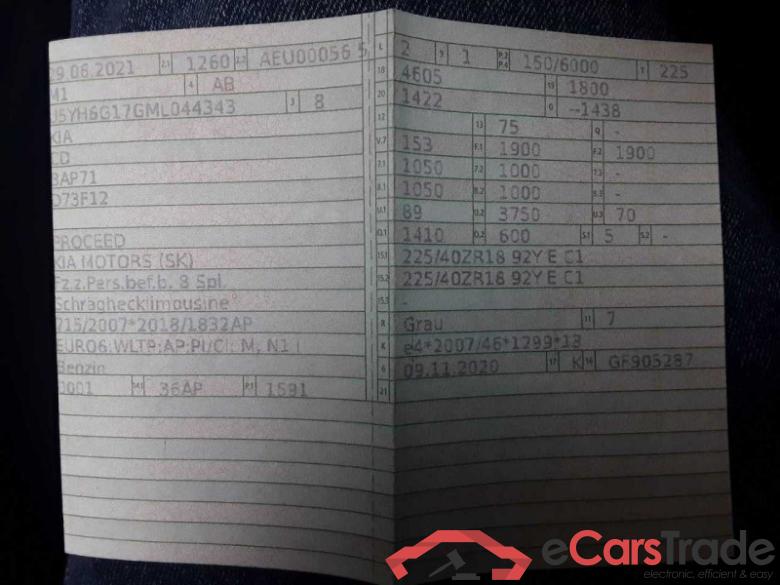 29.06.2021 2.1 1260 2.2 AEU00056 5
M1 4 AB
U5YH6G17GML044343 3 8
KIA
CD
BAP71
D73F12
PROCEED
KIA MOTORS (SK)
Fz.z.Pers.bef.b. 8 Spl.
Schräghecklimousine
715/2007*2018/1832AP
EURO6;WLTP;AP;PI/CI; M, N1 I
Benzin
0001 14.1 36AP P.1 1591
L 2 9 1 P.2 P.4 150/6000 T 225
18 4605 19 1800
20 1422 G --1438
12 13 75 Q -
V.7 153 F.1 1900 F.2 1900
7.1 1050 7.2 1000 7.3 -
8.1 1050 8.2 1000 8.3 -
U.1 89 U.2 3750 U.3 70
O.1 1410 O.2 600 S.1 5 S.2 -
15.1 225/40ZR18 92Y E C1
15.2 225/40ZR18 92Y E C1
15.3 -
R Grau 11 7
K e4*2007/46*1299*13
6 09.11.2020 17 K 16 GF905287
21
eCarsTrade
electronic, efficient & easy